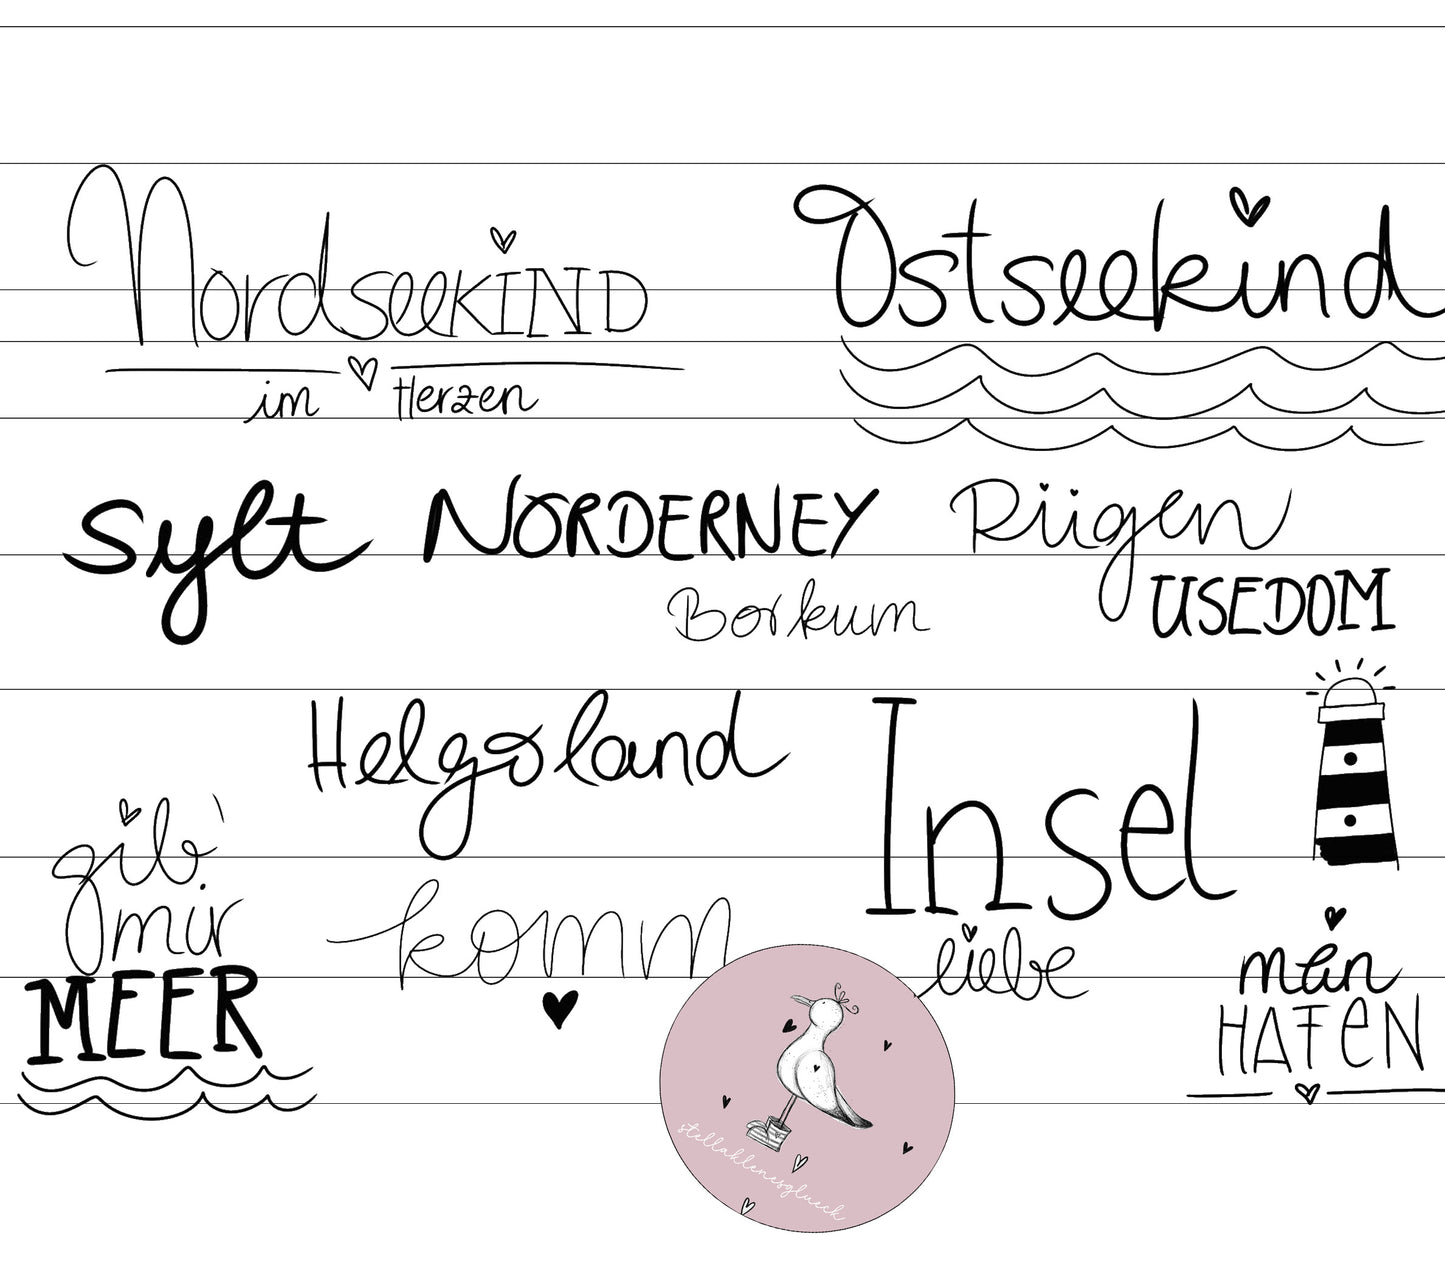 Nordseekind
im Herzen
Ostseekind
Sylt NORDERNEY Rügen
Borkum USEDOM
Helgoland
Insel
liebe
gib'
mir
MEER
komm
mein
HAFEN
stellaklenesglueck